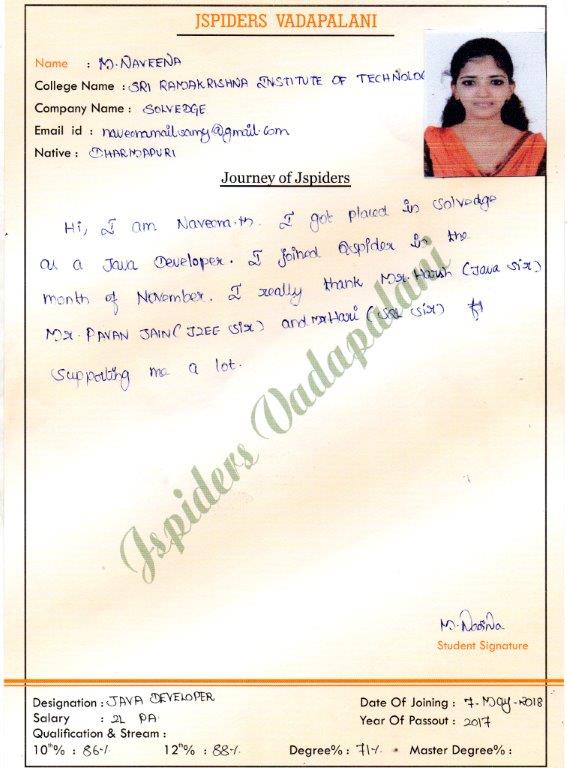 JSPIDERS VADAPALANI
Name : M. NAVEENA
College Name : SRI RAMAKRISHNA INSTITUTE OF TECHNOLOG
Company Name : SOLVEDGE
Email id : naveenamailsamy@gmail.com
Native : DHARMAPURI
Journey of Jspiders
Hi, I am Naveena.M. I got placed in Solvedge
as a Java Developer. I joined Qspider in the
month of November. I really thank Mr. Harish (Java sir)
Mr. PAVAN JAIN (J2EE sir) and Mr Hari (SQL sir) for
supporting me a lot.
Jspiders Vadapalani
Student Signature
Designation : JAVA DEVELOPER
Date Of Joining : 7-May-2018
Salary : 2L PA
Year Of Passout : 2017
Qualification & Stream :
10th% : 86% 12th% : 88% Degree% : 71% Master Degree% :